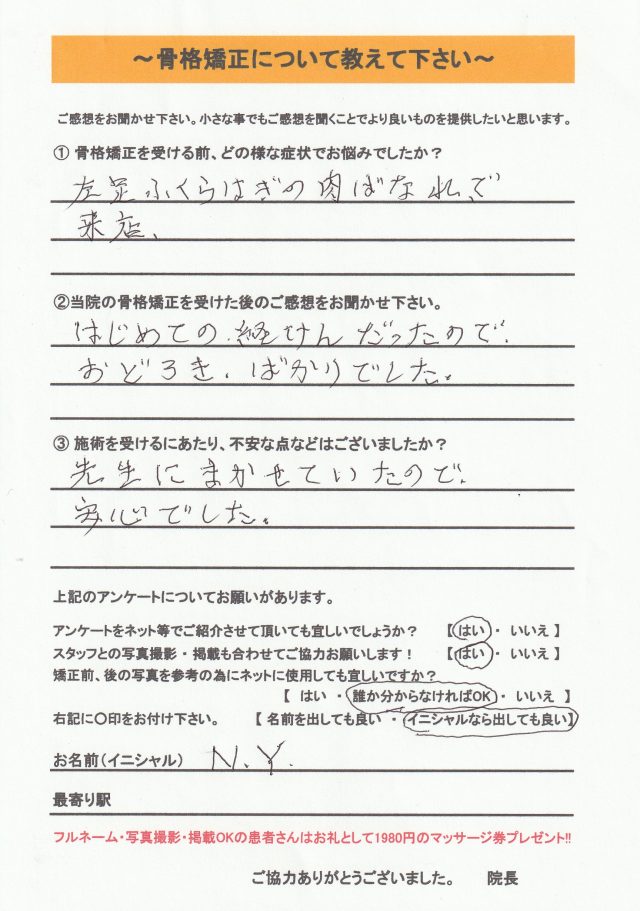 ～骨格矯正について教えて下さい～
ご感想をお聞かせ下さい。小さな事でもご感想を聞くことでより良いものを提供したいと思います。
① 骨格矯正を受ける前、どの様な症状でお悩みでしたか？
左足ふくらはぎの肉ばなれ、で
来店、
②当院の骨格矯正を受けた後のご感想をお聞かせ下さい。
はじめての経けんだったので、
おどろきばかりでした。
③ 施術を受けるにあたり、不安な点などはございましたか？
先生にまかせていたので、
安心でした。
上記のアンケートについてお願いがあります。
アンケートをネット等でご紹介させて頂いても宜しいでしょうか？ 【 はい ・ いいえ 】
スタッフとの写真撮影・掲載も合わせてご協力お願いします！ 【 はい ・ いいえ 】
矯正前、後の写真を参考の為にネットに使用しても宜しいですか？
【 はい ・ 誰か分からなければOK ・ いいえ 】
右記に〇印をお付け下さい。 【 名前を出しても良い ・ イニシャルなら出しても良い】
お名前（イニシャル） N.Y.
最寄り駅
フルネーム・写真撮影・掲載OKの患者さんはお礼として1980円のマッサージ券プレゼント!!
ご協力ありがとうございました。 院長